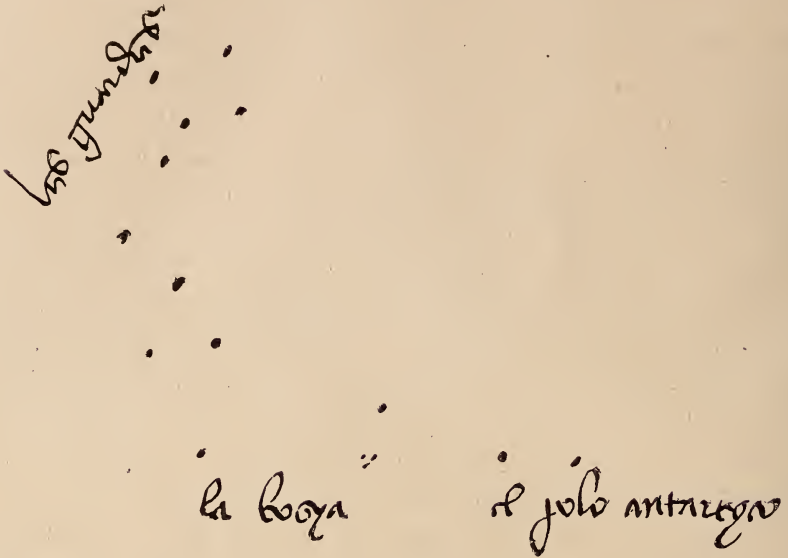 las guardas
la bosya
el polo antartyco